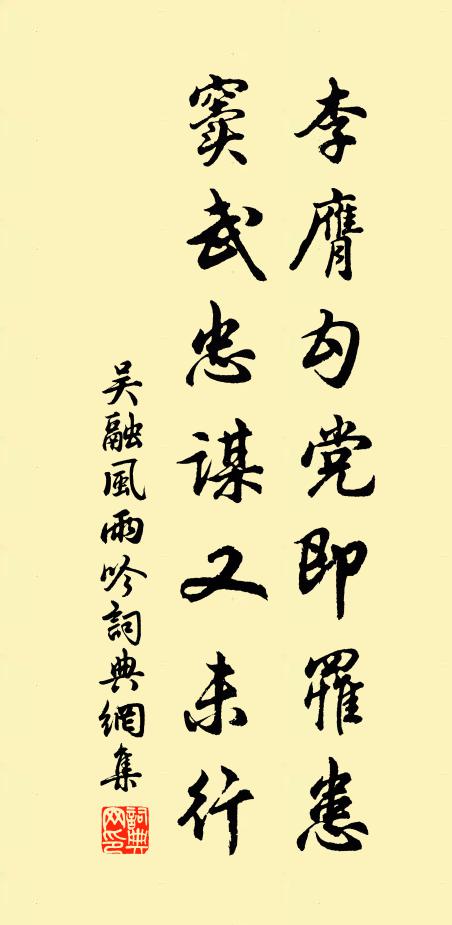 李膺勾党即罹患
窦武忠谋又未行
吴融風雨吟詞典網集
詞典
网印